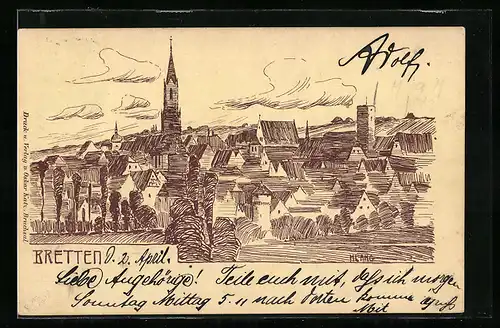 Adolf.
Druck u. Verlag v. Oskar Katz, Bruchsal.
BRETTEN d. 2. April.
H. LANG
Liebe Angehörige! Teile euch mit, dass ich morgen
Sonntag Mittag 5. 11 nach Pforten komme
Mit